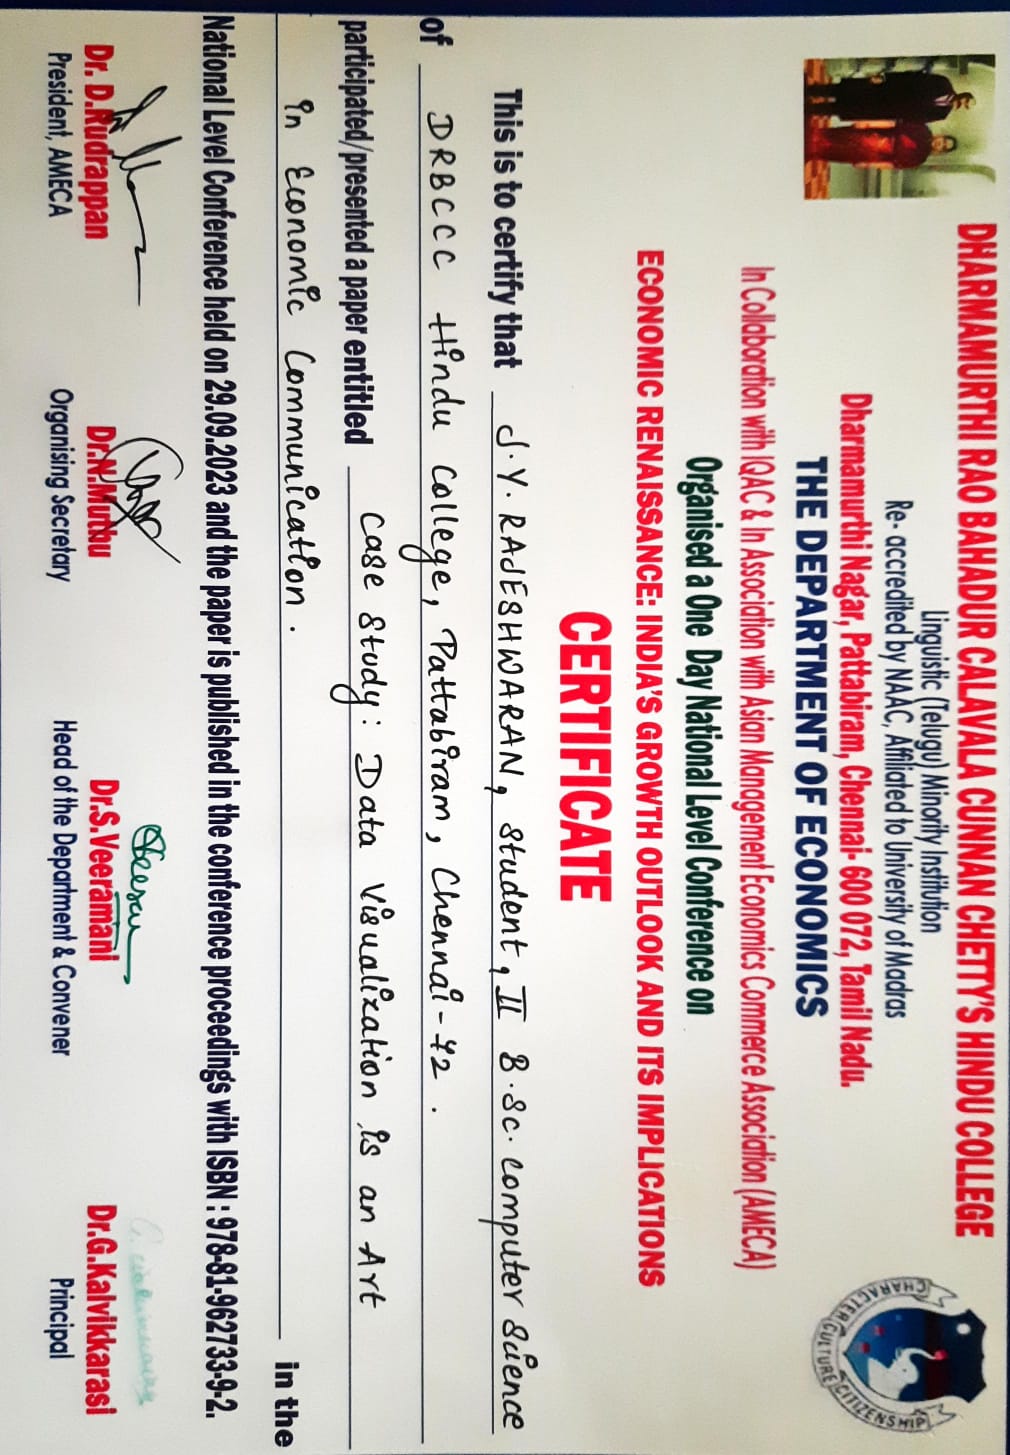 DHARMAMURTHI RAO BAHADUR CALAVALA CUNNAN CHETTY'S HINDU COLLEGE
Linguistic (Telugu) Minority Institution
Re- accredited by NAAC, Affiliated to University of Madras
Dharmamurthi Nagar, Pattabiram, Chennai- 600 072, Tamil Nadu.
THE DEPARTMENT OF ECONOMICS
In Collaboration with IQAC & In Association with Asian Management Economics Commerce Association (AMECA)
Organised a One Day National Level Conference on
ECONOMIC RENAISSANCE: INDIA'S GROWTH OUTLOOK AND ITS IMPLICATIONS
CHARACTER CULTURE CITIZENSHIP
CERTIFICATE
This is to certify that J.Y. RAJESHWARAN, Student, II B.Sc. Computer Science
of DRBCCC Hindu College, Pattabiram, Chennai-72.
participated/presented a paper entitled Case Study: Data Visualization is an Art
in Economic Communication. in the
National Level Conference held on 29.09.2023 and the paper is published in the conference proceedings with ISBN : 978-81-962733-9-2.
Dr. D.Rudrappan
President, AMECA
Dr.N.Muthu
Organising Secretary
Dr.S.Veeramani
Head of the Department & Convener
Dr.G.Kalvikkarasi
Principal